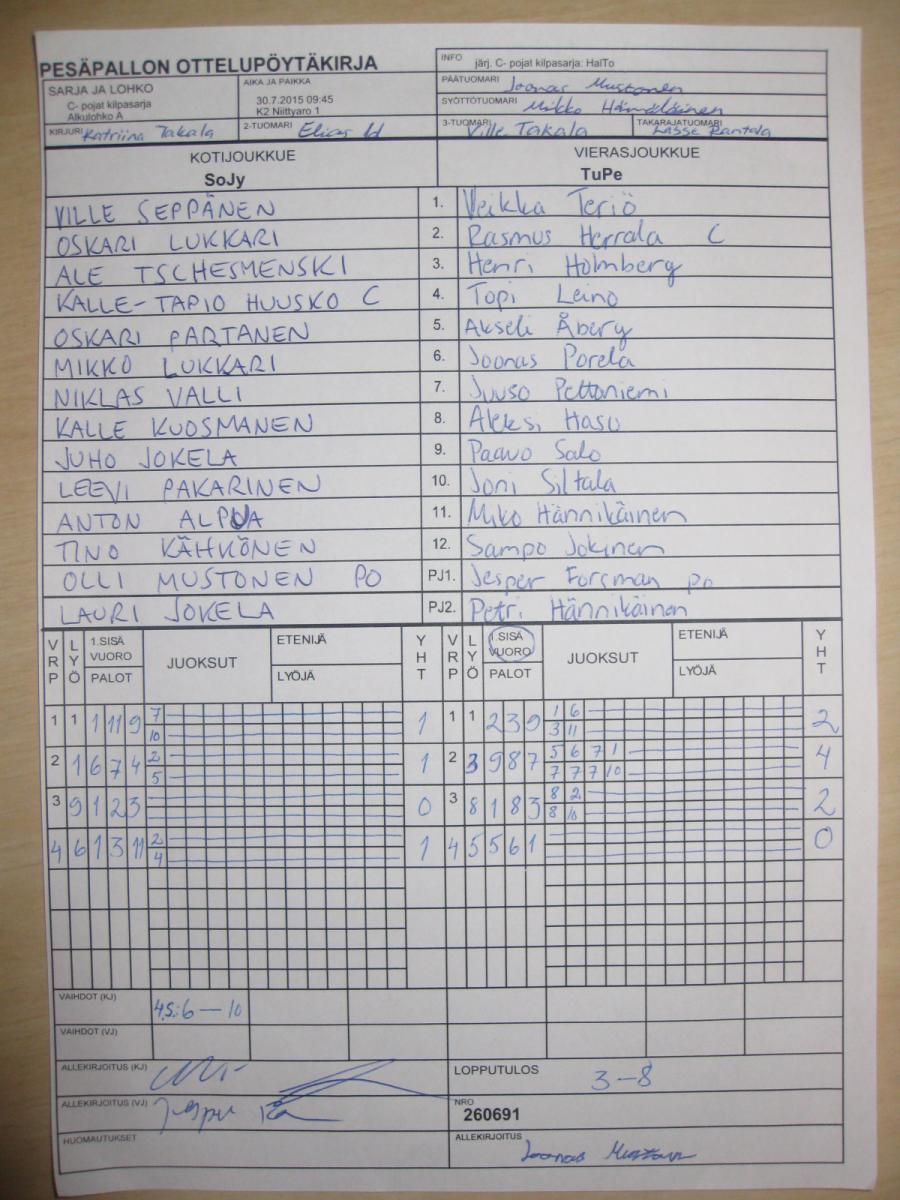 PESÄPALLON OTTELUPÖYTÄKIRJA
INFO järj. C- pojat kilpasarja: HalTo
SARJA JA LOHKO
C- pojat kilpasarja
Alkulohko A
AIKA JA PAIKKA
30.7.2015 09:45
K2 Niittyaro 1
PÄÄTUOMARI Joonas Mustonen
SYÖTTÖTUOMARI Mikko Hämäläinen
KIRJURI Katriina Takala
2-TUOMARI Elias
3-TUOMARI Ville Takala
TAKARAJATUOMARI Lasse Rantala
KOTIJOUKKUE
SoJy
VIERASJOUKKUE
TuPe
VILLE SEPPÄNEN 1. Veikka Teriö
OSKARI LUKKARI 2. Rasmus Herrala C
ALE TSCHESMENSKI 3. Henri Holmberg
KALLE-TAPIO HUUSKO C 4. Topi Leino
OSKARI PARTANEN 5. Akseli Åberg
MIKKO LUKKARI 6. Joonas Porela
NIKLAS VALLI 7. Juuso Pettoniemi
KALLE KUOSMANEN 8. Aleksi Hasu
JUHO JOKELA 9. Paavo Salo
LEEVI PAKARINEN 10. Joni Siltala
ANTON ALPUA 11. Miko Hännikäinen
TINO KÄHKÖNEN 12. Sampo Jokinen
OLLI MUSTONEN PO PJ1. Jesper Forsman po
LAURI JOKELA PJ2. Petri Hännikäinen
VRP LYÖ 1.SISÄ VUORO PALOT JUOKSUT ETENIJÄ LYÖJÄ YHT VRP LYÖ 1.SISÄ VUORO PALOT JUOKSUT ETENIJÄ LYÖJÄ YHT
1 1 1 11 9 7 1 1 1 2 3 9 1 6 2
10 3 11
2 1 6 7 4 2 1 2 3 9 8 7 5 6 7 1 4
5 7 7 7 10
3 9 1 2 3 0 3 8 1 8 3 8 2 2
8 10
4 6 1 3 11 2 1 4 5 5 6 1 0
4
VAIHDOT (KJ) 4,5: 6 — 10
VAIHDOT (VJ)
ALLEKIRJOITUS (KJ)
LOPPUTULOS 3-8
ALLEKIRJOITUS (VJ)
NRO
260691
HUOMAUTUKSET
ALLEKIRJOITUS Joonas